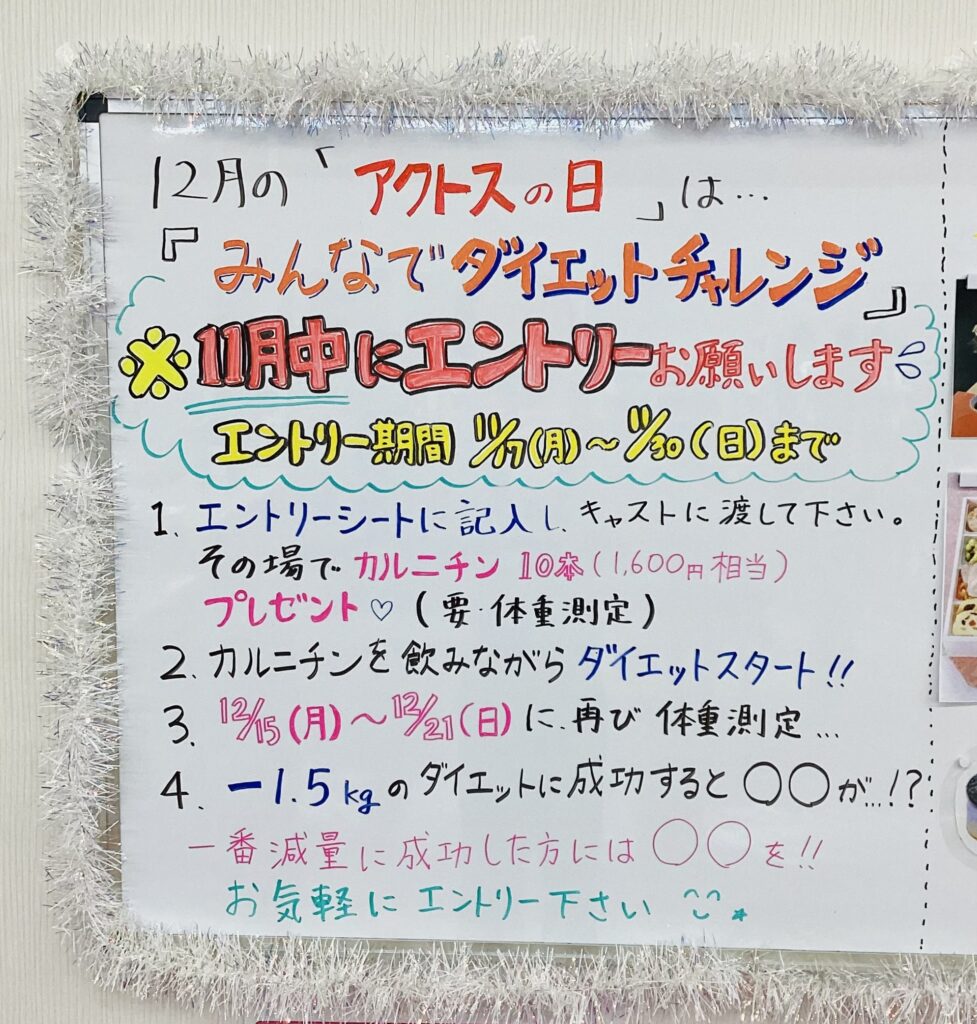 12月の「アクトスの日」は…
『みんなでダイエットチャレンジ』
※11月中にエントリーお願いします
エントリー期間 11/17(月)～11/30(日)まで
1. エントリーシートに記入し、キャストに渡して下さい。
その場でカルニチン10本(1,600円相当)
プレゼント♡(要・体重測定)
2. カルニチンを飲みながらダイエットスタート!!
3. 12/15(月)～12/21(日)に、再び体重測定…
4. -1.5kgのダイエットに成功すると〇〇が…!?
一番減量に成功した方には〇〇を!!
お気軽にエントリー下さい